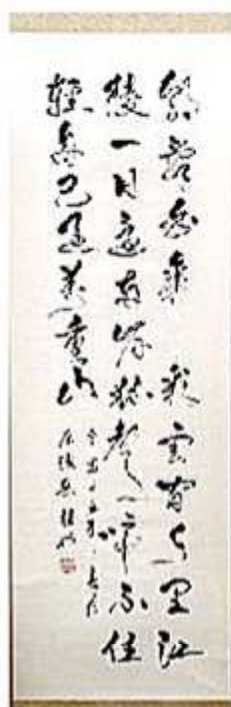 朝辞白帝彩雲間千里江
陵一日還兩岸猿聲啼不住
輕舟已過萬重山